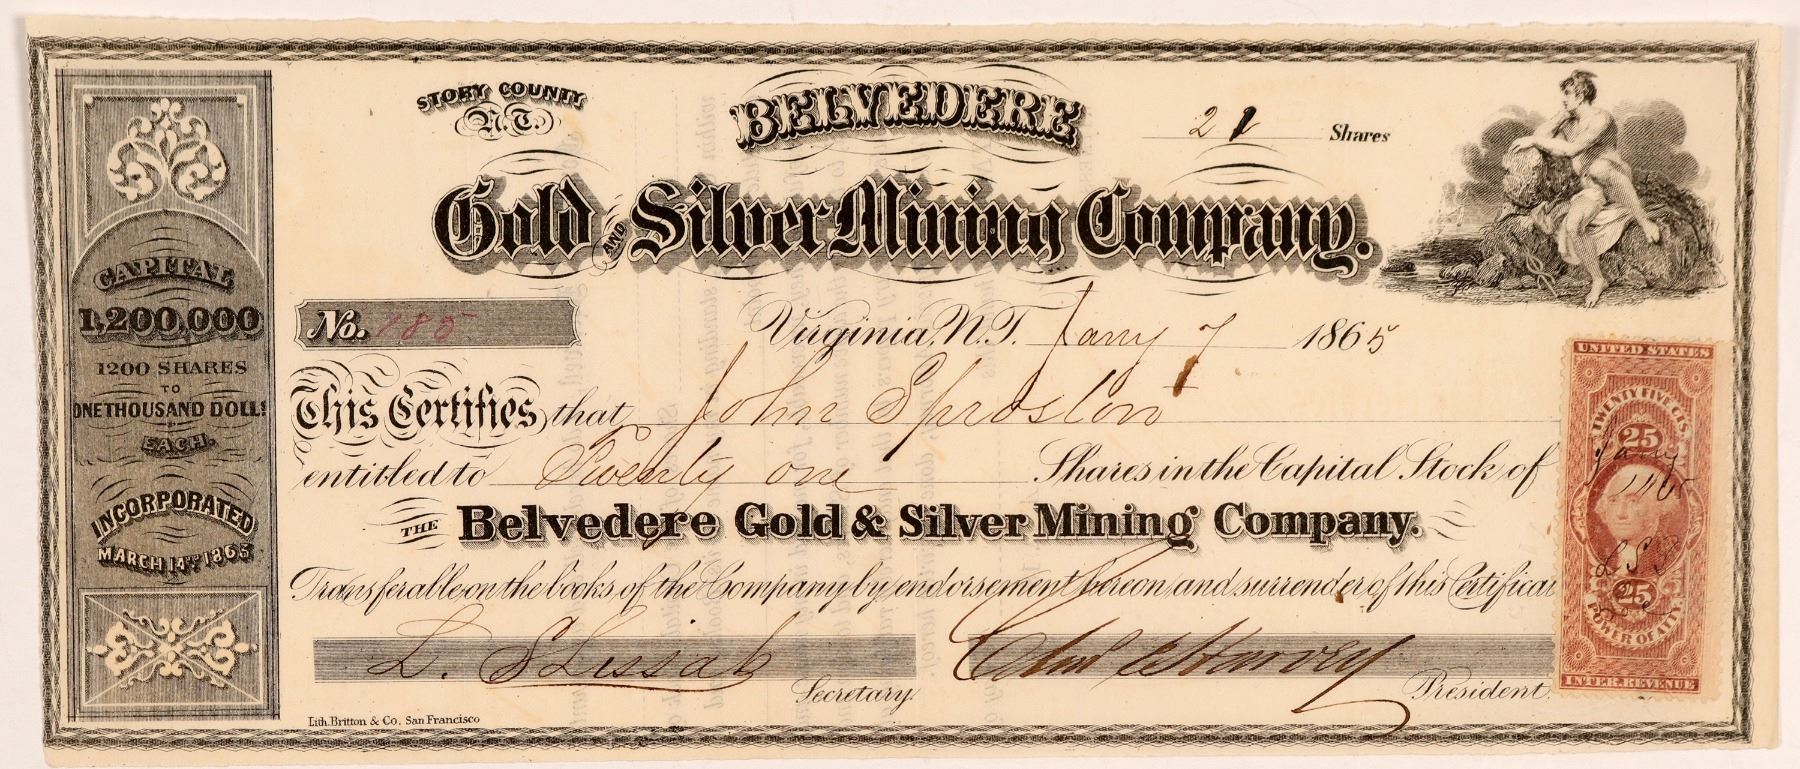 STORY COUNTY
N.T.
BELVEDERE
21 Shares
Gold AND Silver Mining Company.
CAPITAL
1,200,000
1200 SHARES
TO
ONE THOUSAND DOLLS
EACH.
INCORPORATED
MARCH 14TH 1863
No. 185
Virginia, N.T. Jany 7 1865
This Certifies that John Sproston
entitled to Twenty one Shares in the Capital Stock of
THE Belvedere Gold & Silver Mining Company.
Transferable on the books of the Company by endorsement hereon and surrender of this Certificat
L. S Lissak Secretary.
Harvey President.
Lith. Britton & Co. San Francisco
UNITED STATES
TWENTY FIVE CTS.
25
Jany
25
POWER OF ATTY.
INTER. REVENUE